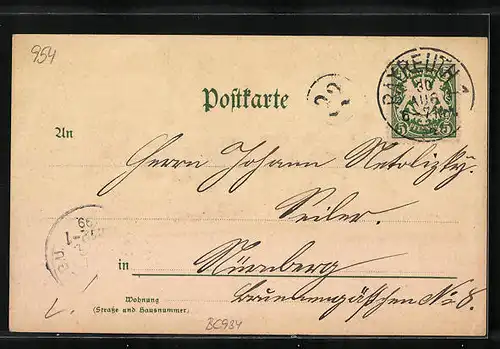 954
BAYREUTH 1
30
AUG
Postkarte
22
5 5
An
Herrn Johann Netolitzky.
Seiler.
in Nürnberg
Wohnung
(Straße und Hausnummer)
Brunnengäßchen No 8.
BC934